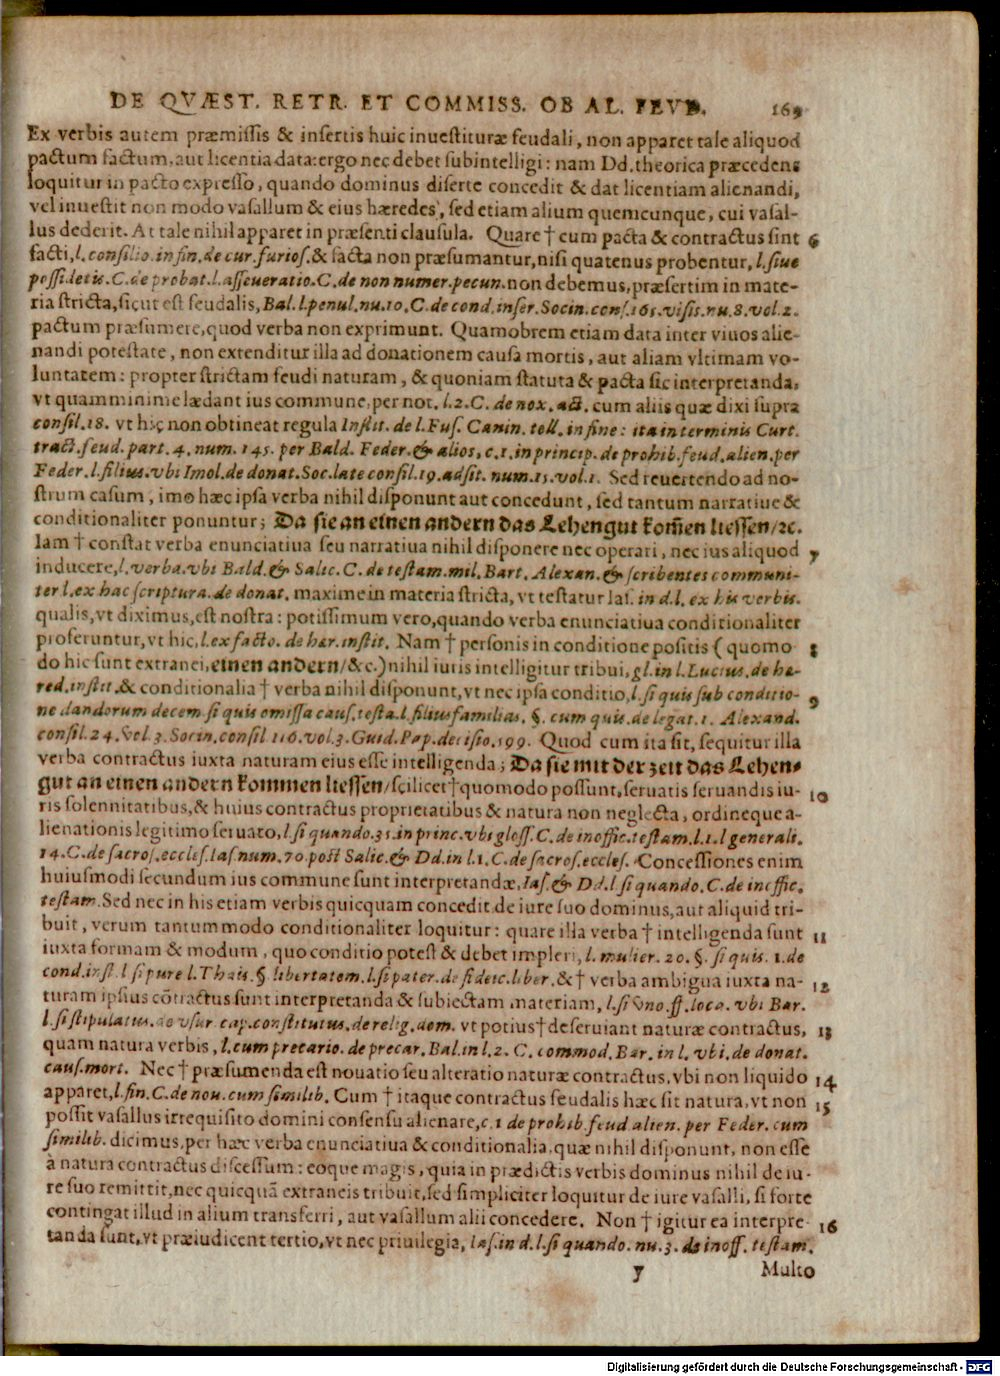 DE QVÆST. RETR. ET COMMISS. OB AL. FEVD. 169
Ex verbis autem præmissis & insertis huic inuestituræ feudali, non apparet tale aliquod
pactum factum, aut licentia data: ergo nec debet subintelligi: nam Dd. theorica præcedens
loquitur in pacto expresso, quando dominus diserte concedit & dat licentiam alienandi,
vel inuestit non modo vasallum & eius hæredes, sed etiam alium quemcunque, cui vasal-
lus dederit. At tale nihil apparet in præsenti clausula. Quare † cum pacta & contractus sint 6
facti, l. consilio. in fin. de cur. furios. & facta non præsumantur, nisi quatenus probentur, l. siue
possidetis. C. de probat. l. asseueratio. C. de non numer. pecun. non debemus, præsertim in mate-
ria stricta, sicut est feudalis, Bal. l. penul. nu. 10. C. de cond. inser. Socin. cons. 165. visis. nu. 8. vol. 2.
pactum præsumere, quod verba non exprimunt. Quamobrem etiam data inter viuos alie-
nandi potestate, non extenditur illa ad donationem causa mortis, aut aliam vltimam vo-
luntatem: propter strictam feudi naturam, & quoniam statuta & pacta sic interpretanda,
vt quam minime lædant ius commune, per not. l. 2. C. de nox. act. cum aliis quæ dixi supra
consil. 18. vt hic non obtineat regula Instit. de l. Fus. Canin. toll. in fine: ita in terminis Curt.
tract. feud. part. 4. num. 145. per Bald. Feder. & alios, c. 1. in princip. de prohib. feud. alien. per
Feder. l. filius. vbi Imol. de donat. Soc. late consil. 19. adsit. num. 15. vol. 1. Sed reuertendo ad no-
strum casum, imo hæc ipsa verba nihil disponunt aut concedunt, sed tantum narratiue &
conditionaliter ponuntur; Da sie an einen andern das Lehengut kom̃en liessen/ꝛc.
Iam † constat verba enunciatiua seu narratiua nihil disponere nec operari, nec ius aliquod 7
inducere, l. verba. vbi Bald. & Salic. C. de testam. mil. Bart. Alexan. & scribentes communi-
ter l. ex hac scriptura. de donat. maxime in materia stricta, vt testatur Ias. in d. l. ex his verbis.
qualis, vt diximus, est nostra: potissimum vero, quando verba enunciatiua conditionaliter
proferuntur, vt hic, l. ex facto. de hær. instit. Nam † personis in conditione positis (quomo 8
do hic sunt extranei, einen andern/&c.) nihil iuris intelligitur tribui, gl. in l. Lucius. de hæ-
red. instit. & conditionalia † verba nihil disponunt, vt nec ipsa conditio, l. si quis sub conditio- 9
ne dandorum decem. si quis omissa caus. testa. l. filiusfamilias. §. cum quis. de legat. 1. Alexand.
consil. 24. vol. 3. Socin. consil 116. vol. 3. Guid. Pap. decisio. 199. Quod cum ita sit, sequitur illa
verba contractus iuxta naturam eius esse intelligenda; Da sie mit der zeit das Lehen-
gut an einen andern kommen liessen/scilicet † quomodo possunt, seruatis seruandis iu- 10
ris solennitatibus, & huius contractus proprietatibus & natura non neglecta, ordineque a-
lienationis legitimo seruato, l. si quando. 35. in princ. vbi gloss. C. de inoffic. testam. l. 1. l generali.
14. C. de sacros. eccles. Ias. num. 70. post Salic. & Dd. in l. 1. C. de sacros. eccles. Concessiones enim
huiusmodi secundum ius commune sunt interpretandæ, Ias. & Dd. l si quando. C. de inoffic.
testam. Sed nec in his etiam verbis quicquam concedit de iure suo dominus, aut aliquid tri-
buit, verum tantummodo conditionaliter loquitur: quare illa verba † intelligenda sunt 11
iuxta formam & modum, quo conditio potest & debet impleri, l. mulier. 20. §. si quis. 1. de
cond. inst. l si pure l. Thais. §. libertatem. l. si pater. de fideic. liber. & † verba ambigua iuxta na- 12
turam ipsius cõtractus sunt interpretanda & subiectam materiam, l. si vno. ff. loca. vbi Bar.
l. si stipulatus. de vsur. cap. constitutus. de relig. dom. vt potius † deseruiant naturæ contractus, 13
quam natura verbis, l. cum precario. de precar. Bal. in l. 2. C. commod. Bar. in l. vbi. de donat.
caus. mort. Nec † præsumenda est nouatio seu alteratio naturæ contractus, vbi non liquido 14
apparet, l. fin. C. de nou. cum similib. Cum † itaque contractus feudalis hæc sit natura, vt non 15
possit vasallus irrequisito domini consensu alienare, c. 1 de prohib. feud alien. per Feder. cum
similib. dicimus, per hæc verba enunciatiua & conditionalia, quæ nihil disponunt, non esse
à natura contractus discessum: eoque magis, quia in prædictis verbis dominus nihil de iu-
re suo remittit, nec quicquã extraneis tribuit, sed simpliciter loquitur de iure vasalli, si forte
contingat illud in alium transferri, aut vasallum alii concedere. Non † igitur ea interpre- 16
tanda sunt, vt præiudicent tertio, vt nec priuilegia, Ias. in d. l. si quando. nu. 3. de inoff. testam.
y Multo
Digitalisierung gefördert durch die Deutsche Forschungsgemeinschaft - DFG